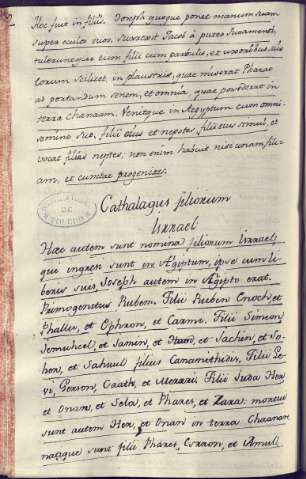 hoc fuit in filiis. Joseph quoque ponet manum suam
super oculos tuos. surrexit Jacob à puteo Juramenti,
tuleruntque eum filii cum parvulis, et uxoribus suis
in plaustris, quae miserat Pharao
ad portandum senem, et omnia quae possederat in
terra Chanaam. Venitque in Aegyptum cum omni
semine suo, filii eius et nepotes, filii eius simul, et
neptes, non enim habuit nisi unam fili-
am, et cunctae progenies.
Cathalagus filiorum
Isrrael
Haec autem sunt nomina filiorum Isrrael,
qui ingresi sunt in Agiptum, ipse cum li-
beris suis Joseph autem in Agipto erat.
Primogenitus Rubem. Filii Ruben Enoch, et
Phallu, et Ophron, et Carmi. Filii Simeon
Jemuhel, et Jamin, et et Jachin, et So-
har, et Sahuel filius Cananithidis. Filii Le-
vi, Gerson, Caath, et Merari. Filii Juda Her
et Onan, et Sela, et Phares, et Zara: mortui
sunt autem Her, et Onan in terra Chanaan
natique sunt filii Phares, Esrron, et Amul.